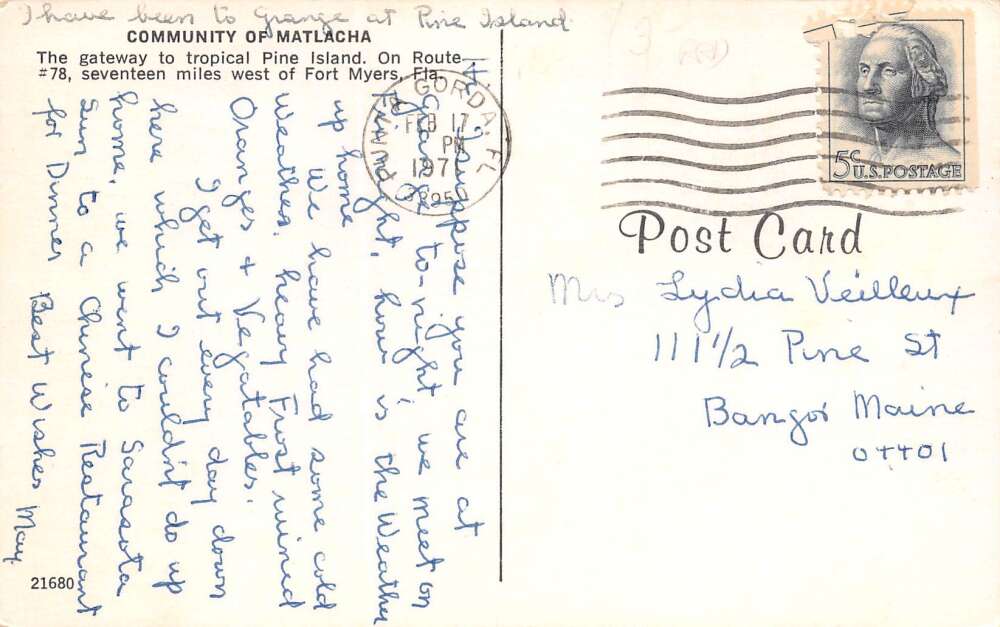 I have been to Grange at Pine Island
COMMUNITY OF MATLACHA
The gateway to tropical Pine Island. On Route
#78, seventeen miles west of Fort Myers, Fla.
Hi, I suppose you are at
Grange to-night we meet on
Fri night, how is the Weather
up home
We have had some cold
Weather, heavy Frost ruined
Oranges + Vegatables.
I get out every day down
here which I couldn't do up
home, we went to Sarasota
Sun to a Chinese Reataurant
for Dinner
Best Wishes May
21680
GORDA, FL
PUNTA
FEB 17
PM
1971
5¢ U.S. POSTAGE
Post Card
Mrs Lydia Veilleux
111 1/2 Pine St
Bangor Maine
04401